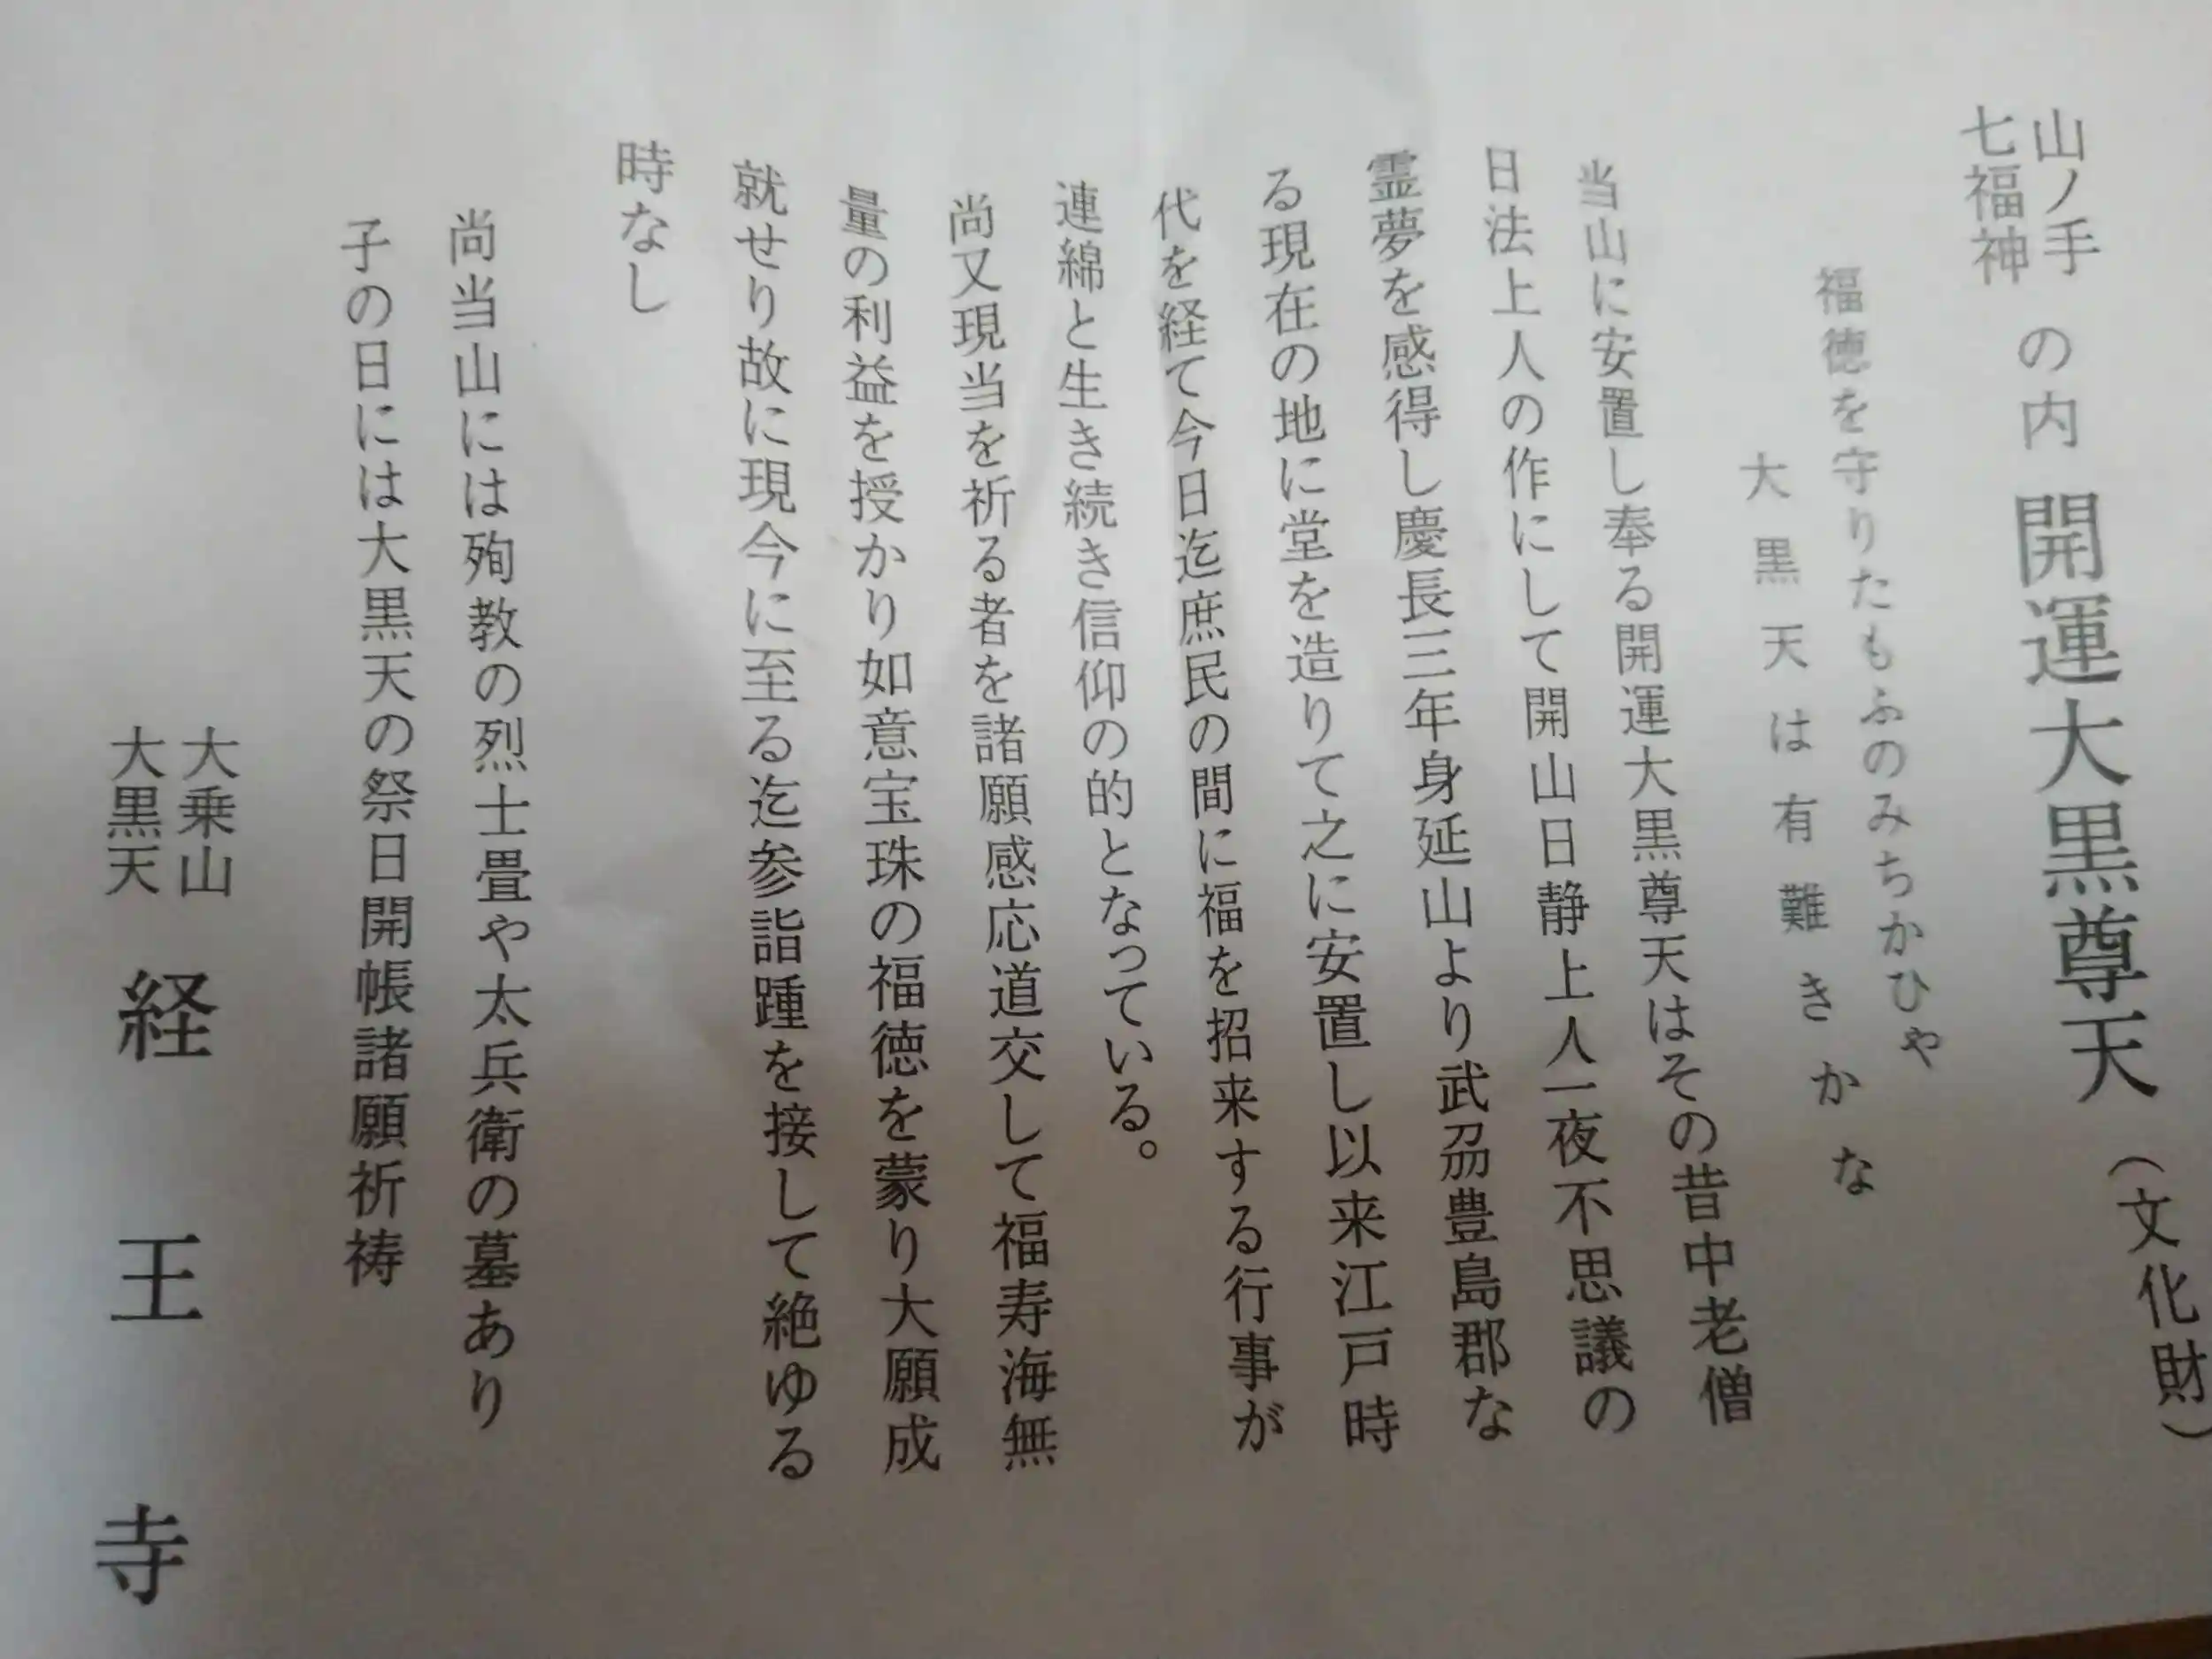 山ノ手
七福神
の内 開運大黒尊天(文化財)
福徳を守りたもふのみちかひや
大黒天は有難きかな
当山に安置し奉る開運大黒尊天はその昔中老僧
日法上人の作にして開山日静上人一夜不思議の
霊夢を感得し慶長三年身延山より武刕豊島郡な
る現在の地に堂を造りて之に安置し以来江戸時
代を経て今日迄庶民の間に福を招来する行事が
連綿と生き続き信仰の的となっている。
尚又現当を祈る者を諸願感応道交して福寿海無
量の利益を授かり如意宝珠の福徳を蒙り大願成
就せり故に現今に至る迄参詣踵を接して絶ゆる
時なし
尚当山には殉教の烈士畳や太兵衛の墓あり
子の日には大黒天の祭日開帳諸願祈祷
大乗山
大黒天
経王寺